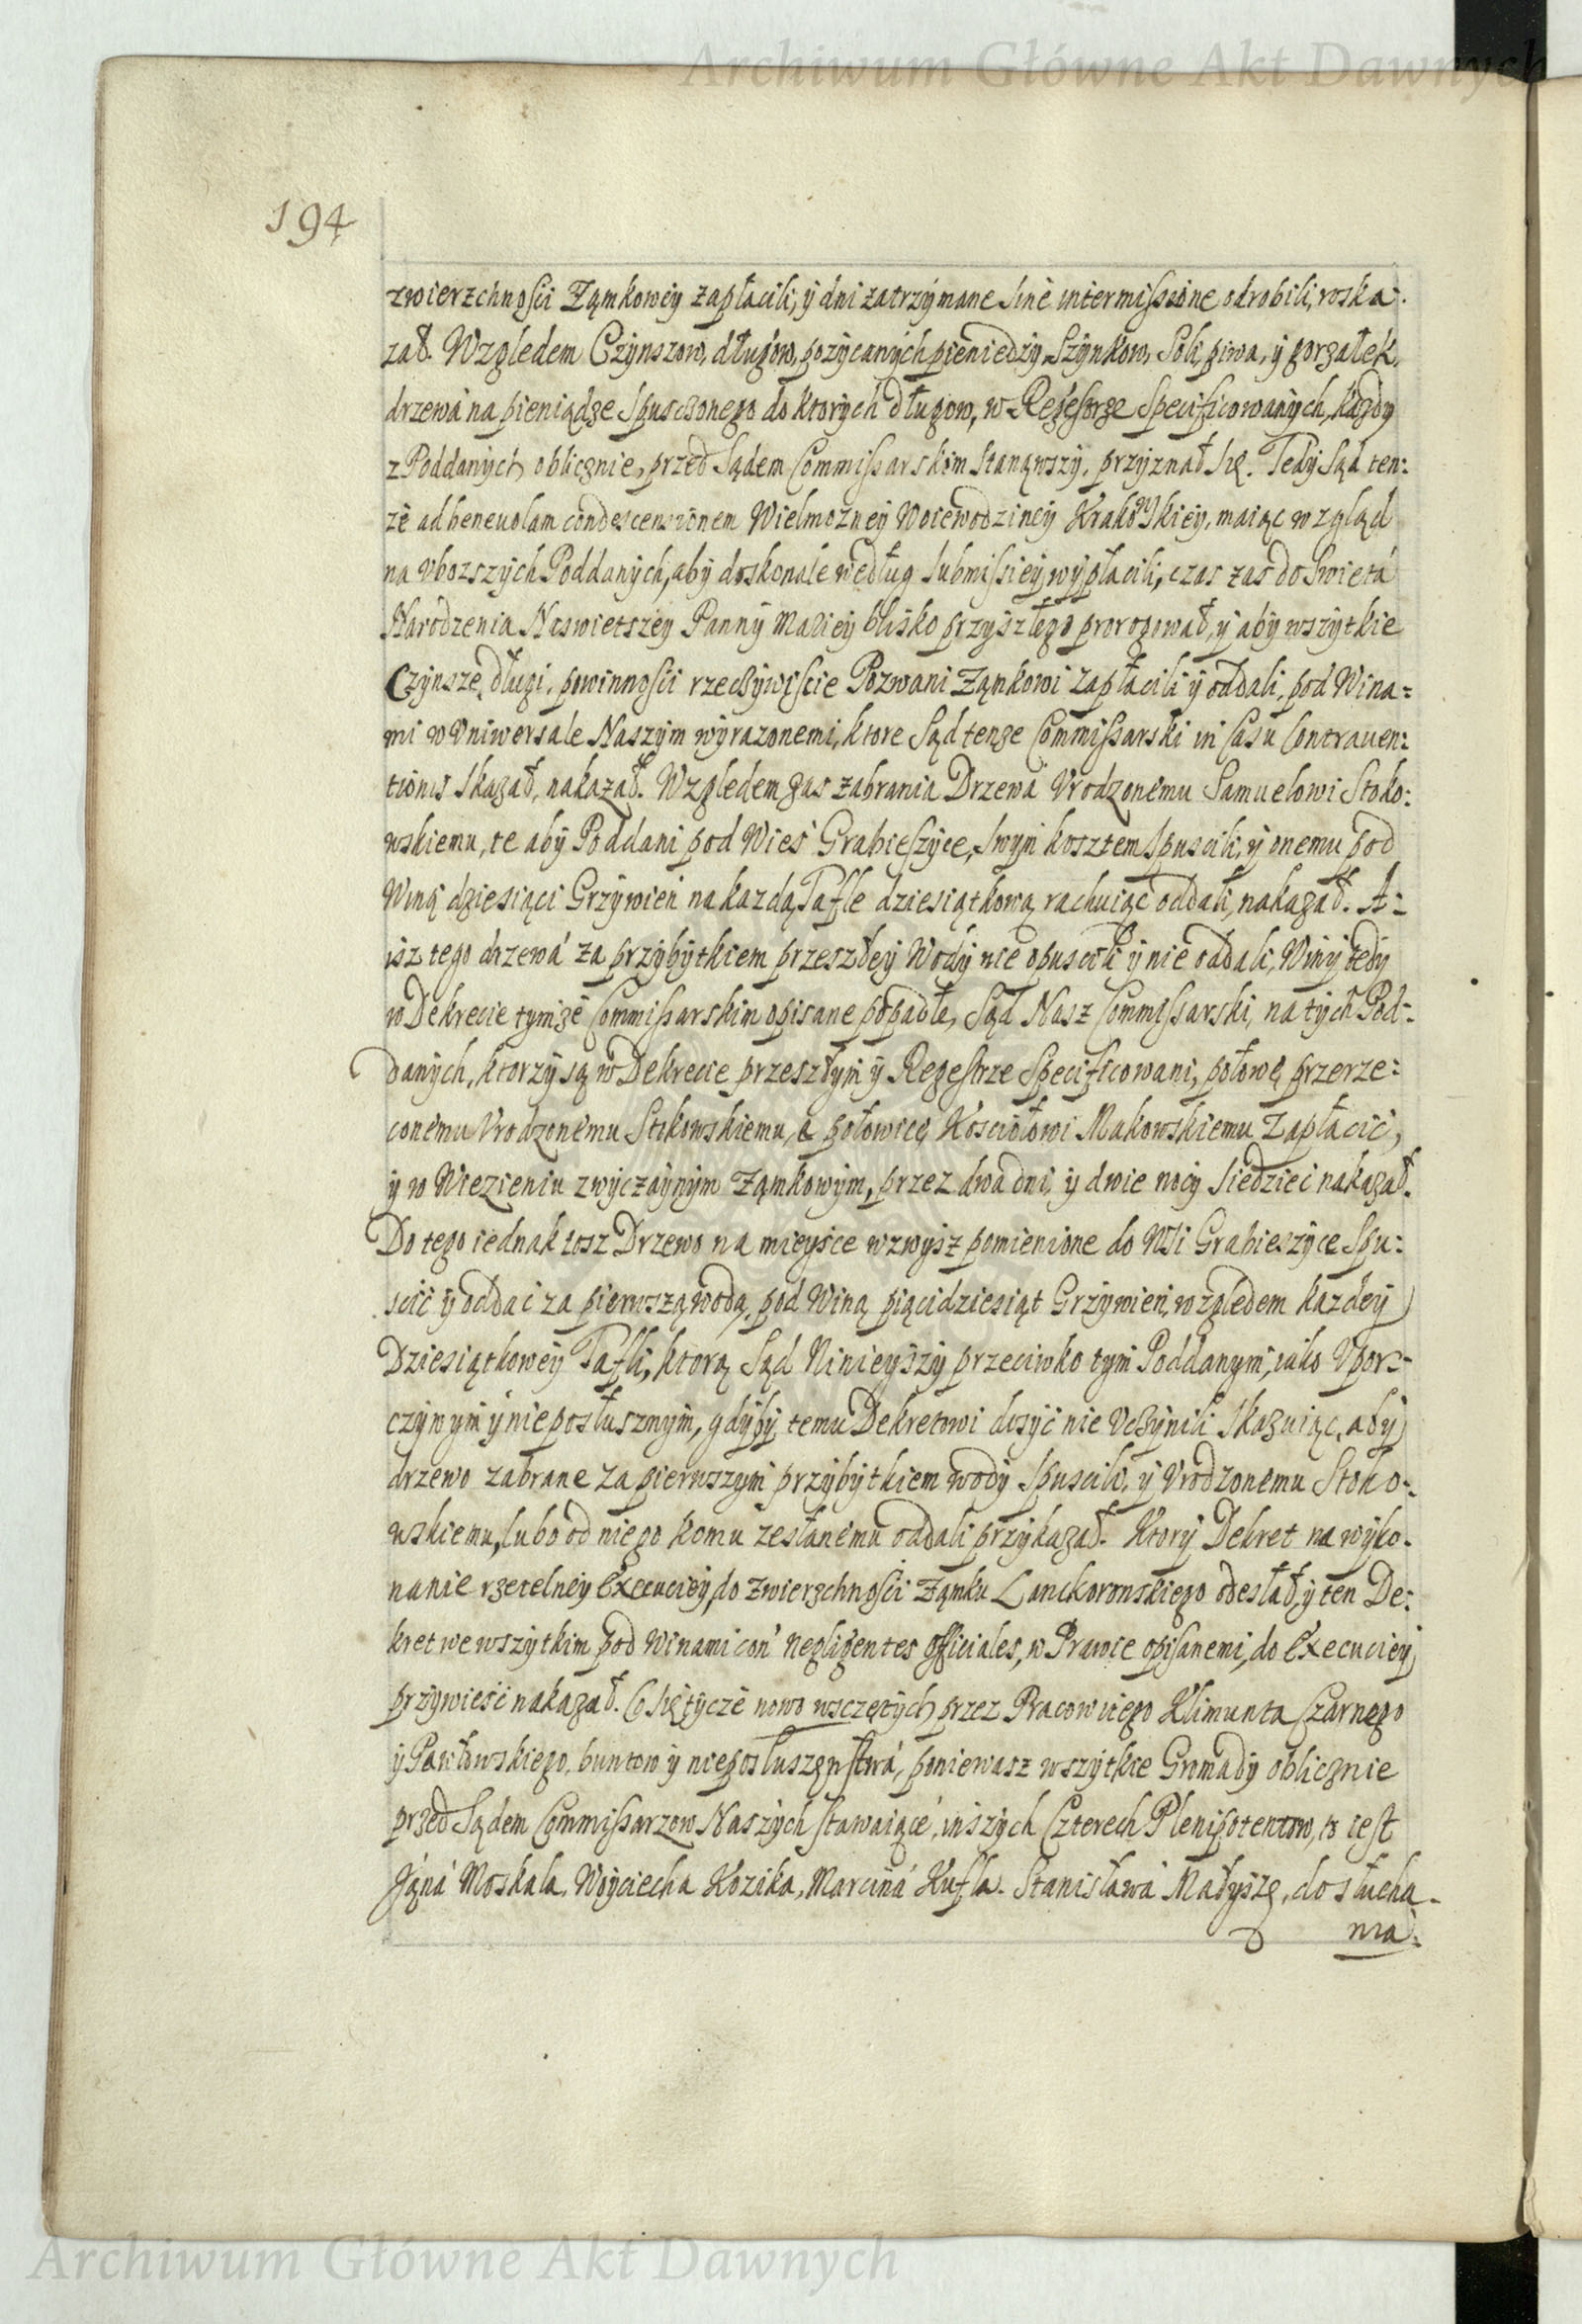 Archiwum Główne Akt Dawnych
194
zwierzchności Zamkowey zapłacili, ÿ dni zatrzymane sine intermissione odrobili, roska:
zał. Względem Czynszow, długow, pozycanych pieniedzy, Szynkow, Soli, piwa, ÿ gorzałek,
drzewá na pieniądze spusczonego do ktorych długow, w Regestrze specificowanych, kazdy
z Poddanych oblicznie, przed Sądem Commissarskim stanąwszy, przyznał się. Tedy Sąd ten:
że ad benevolam condescensionem Wielmozney Woiewodziney Krakowskiey, maiąc wzgląd
na vbozszych Poddanych, aby doskonale według submissiey wypłacili, czas zas do Swietá
Narodzenia Naswietszey Panny Mariey blisko przyszłego prorogował, ÿ aby wszytkie
Czynsze, długi, powinności rzeczywiscie Pozwani Zamkowi zapłacili ÿ oddali, pod Wina=
mi w Vniwersale Naszym wyrazonemi, ktore Sąd tenze Commissarski in Casu Contraven:
tionis skazał, nakazał. Względem zas zabrania Drzewá Vrodzonemu Samuelowi Stoko:
wskiemu, te aby Poddani pod Wieś Grabieszyce, swym kosztem spuscili, ÿ onemu pod
Winą dziesiąci Grzywien na kazdą Taflę dziesiątkową rachuiąc oddali, nakazał. A:
isz tego drzewá za przybytkiem przeszłey Wody nie opuscili ÿ nie oddali, Winy tedy
w Dekrecie tymze Commissarskim opisane popadłe, Sąd Nasz Commissarski, na tych Pod:
danych, ktorzy są w Dekrecie przeszłym ÿ Regestrze Specificowani, połowę przerze:
conemu Vrodzonemu Stokowskiemu, a połowicę Kosciołowi Makowskiemu Zapłacić,
ÿ w Wiezieniu zwyczaynym Zamkowym, przez dwa dni, ÿ dwie nocy siedzieć nakazał.
Do tego iednak tosz Drzewo na mieysce wzwysz pomienione do Wsi Grabieszyce spu:
scić ÿ oddać za pierwszą wodą, pod Winą piącidziesiąt Grzywien, względem kazdey
Dziesiątkowey Tafli, ktorą Sąd Ninieyszy przeciwko tym Poddanym, iako Vpor:
czywym ÿ nieposłusznym, gdyby temu Dekretowi dosyć nie Vczynili skazuiąc, aby
drzewo zabrane za pierwszym przybytkiem wody spuscili, ÿ Vrodzonemu Stoko:
wskiemu, lubo od niego komu zesłanemu oddali przykazał. Ktory Dekret na wyko:
nanie rzetelney Execuciey, do zwierzchności Zamku Lanckoronskiego odesłał, ÿ ten De:
kret we wszytkim pod winami con negligentes officiales, w Prawie opisanemi, do Execuciey
przywieść nakazał. Co się tycze nowo wsczętych przez Pracowitego Klimunta Czarnego
ÿ Pawłowskiego, buntow ÿ nieposłuszęnstwá, poniewasz wszytkie Gromady oblicznie
przed Sądem Commissarzow Naszych stawaiące, inszych Czterech Plenipotentow, to iest
Jana Moskala, Woyciecha Kozika, Marcina Kufla, Stanisława Małyszę, do słucha-
nia.
Archiwum Główne Akt Dawnych